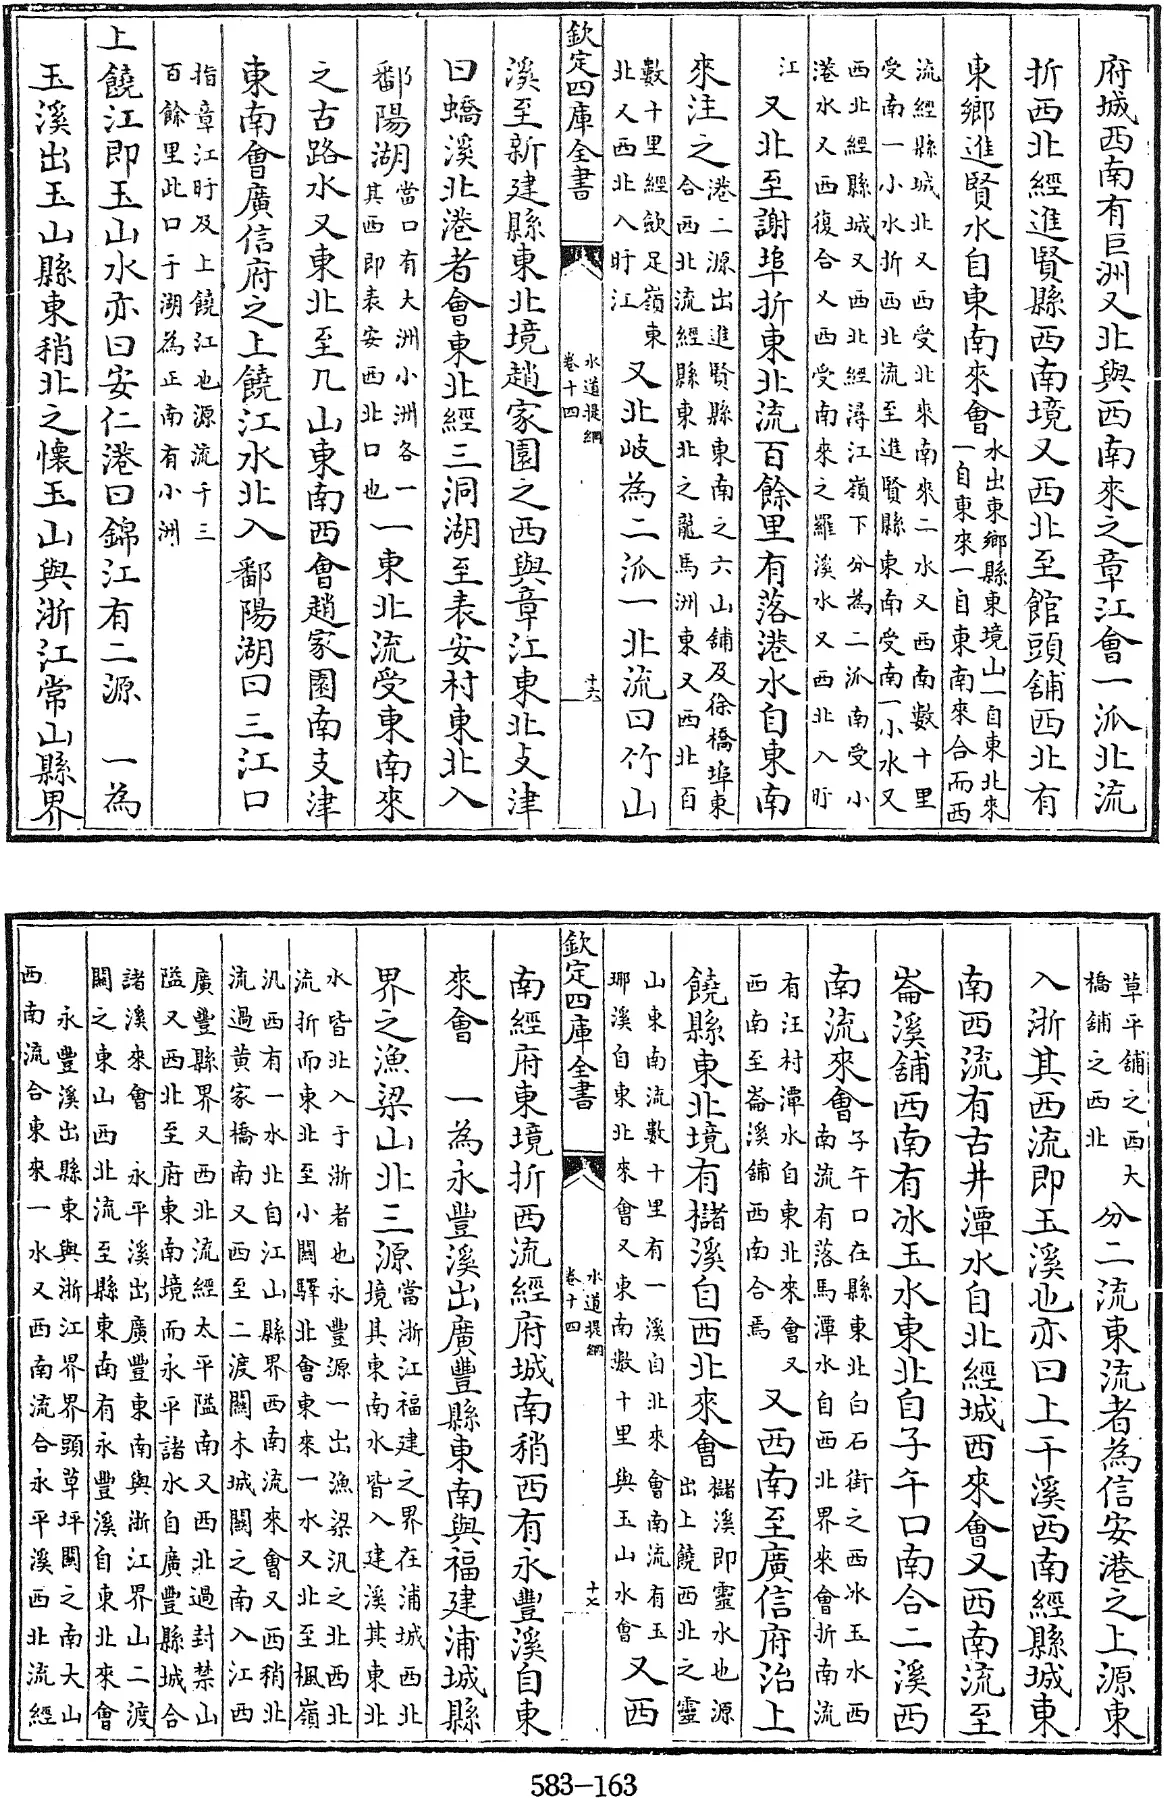 府城西南有巨洲又北與西南來之章江會一派北流
折西北經進賢縣西南境又西北至館頭舖西北有
東鄉進賢水自東南來會
水出東鄉縣東境山一自東北來
一自東來一自東南來合而西
流經縣城北又西受北來南來二水又西南數十里
受南一小水折西北流至進賢縣東南受南一小水又
西北經縣城又西北經潯江嶺下分為二派南受小
港水又西復合又西受南來之羅溪水又西北入盱
江
又北至謝埠折東北流百餘里有落港水自東南
來注之
港二源出進賢縣東南之六山舖及徐橋埠東
合西北流經縣東北之龍馬洲東又西北百
數十里經歛足嶺東
北又西北入盱江
又北岐為二派一北流曰竹山
欽定四庫全書
水道提綱
卷十四
十六
溪至新建縣東北境趙家園之西與章江東北支津
曰蟜溪北港者會東北經三洞湖至表安村東北入
鄱陽湖
當口有大洲小洲各一
其西即表安西北口也
一東北流受東南來
之古路水又東北至几山東南西會趙家園南支津
東南會廣信府之上饒江水北入鄱陽湖曰三江口
指章江盱及上饒江也源流千三
百餘里此口于湖為正南有小洲
上饒江即玉山水亦曰安仁港曰錦江有二源 一為
玉溪出玉山縣東稍北之懷玉山與浙江常山縣界
草平舖之西大
橋舖之西北
分二流東流者為信安港之上源東
入浙其西流即玉溪也亦曰上干溪西南經縣城東
南西流有古井潭水自北經城西來會又西南流至
崙溪舖西南有冰玉水東北自子午口南合二溪西
南流來會
子午口在縣東北白石街之西冰玉水西
南流有落馬潭水自西北界來會折南流
有汪村潭水自東北來會又
西南至崙溪舖西南合焉
又西南至廣信府治上
饒縣東北境有櫧溪自西北來會
櫧溪即靈水也源
出上饒西北之靈
山東南流數十里有一溪自北來會南流有玉
瑘溪自東北來會又東南數十里與玉山水會
又西
欽定四庫全書
水道提綱
卷十四
十七
南經府東境折西流經府城南稍西有永豐溪自東
來會 一為永豐溪出廣豐縣東南與福建浦城縣
界之漁梁山北三源
當浙江福建之界在浦城西北
境其東南水皆入建溪其東北
水皆北入于浙者也永豐源一出漁梁汛之北西北
流折而東北至小關驛北會東來一水又北至楓嶺
汛西有一水北自江山縣界西南流來會又西稍北
流過黃家橋南又西至二渡關木城關之南入江西
廣豐縣界又西北流經太平隘南又西北過封禁山
隘又西北至府東南境而永平諸水自廣豐縣城合
諸溪來會 永平溪出廣豐東南與浙江界山二渡
關之東山西北流至縣東南有永豐溪自東北來會
永豐溪出縣東與浙江界界頭草坪關之南大山
西南流合東來一水又西南流合永平溪西北流經
583-163